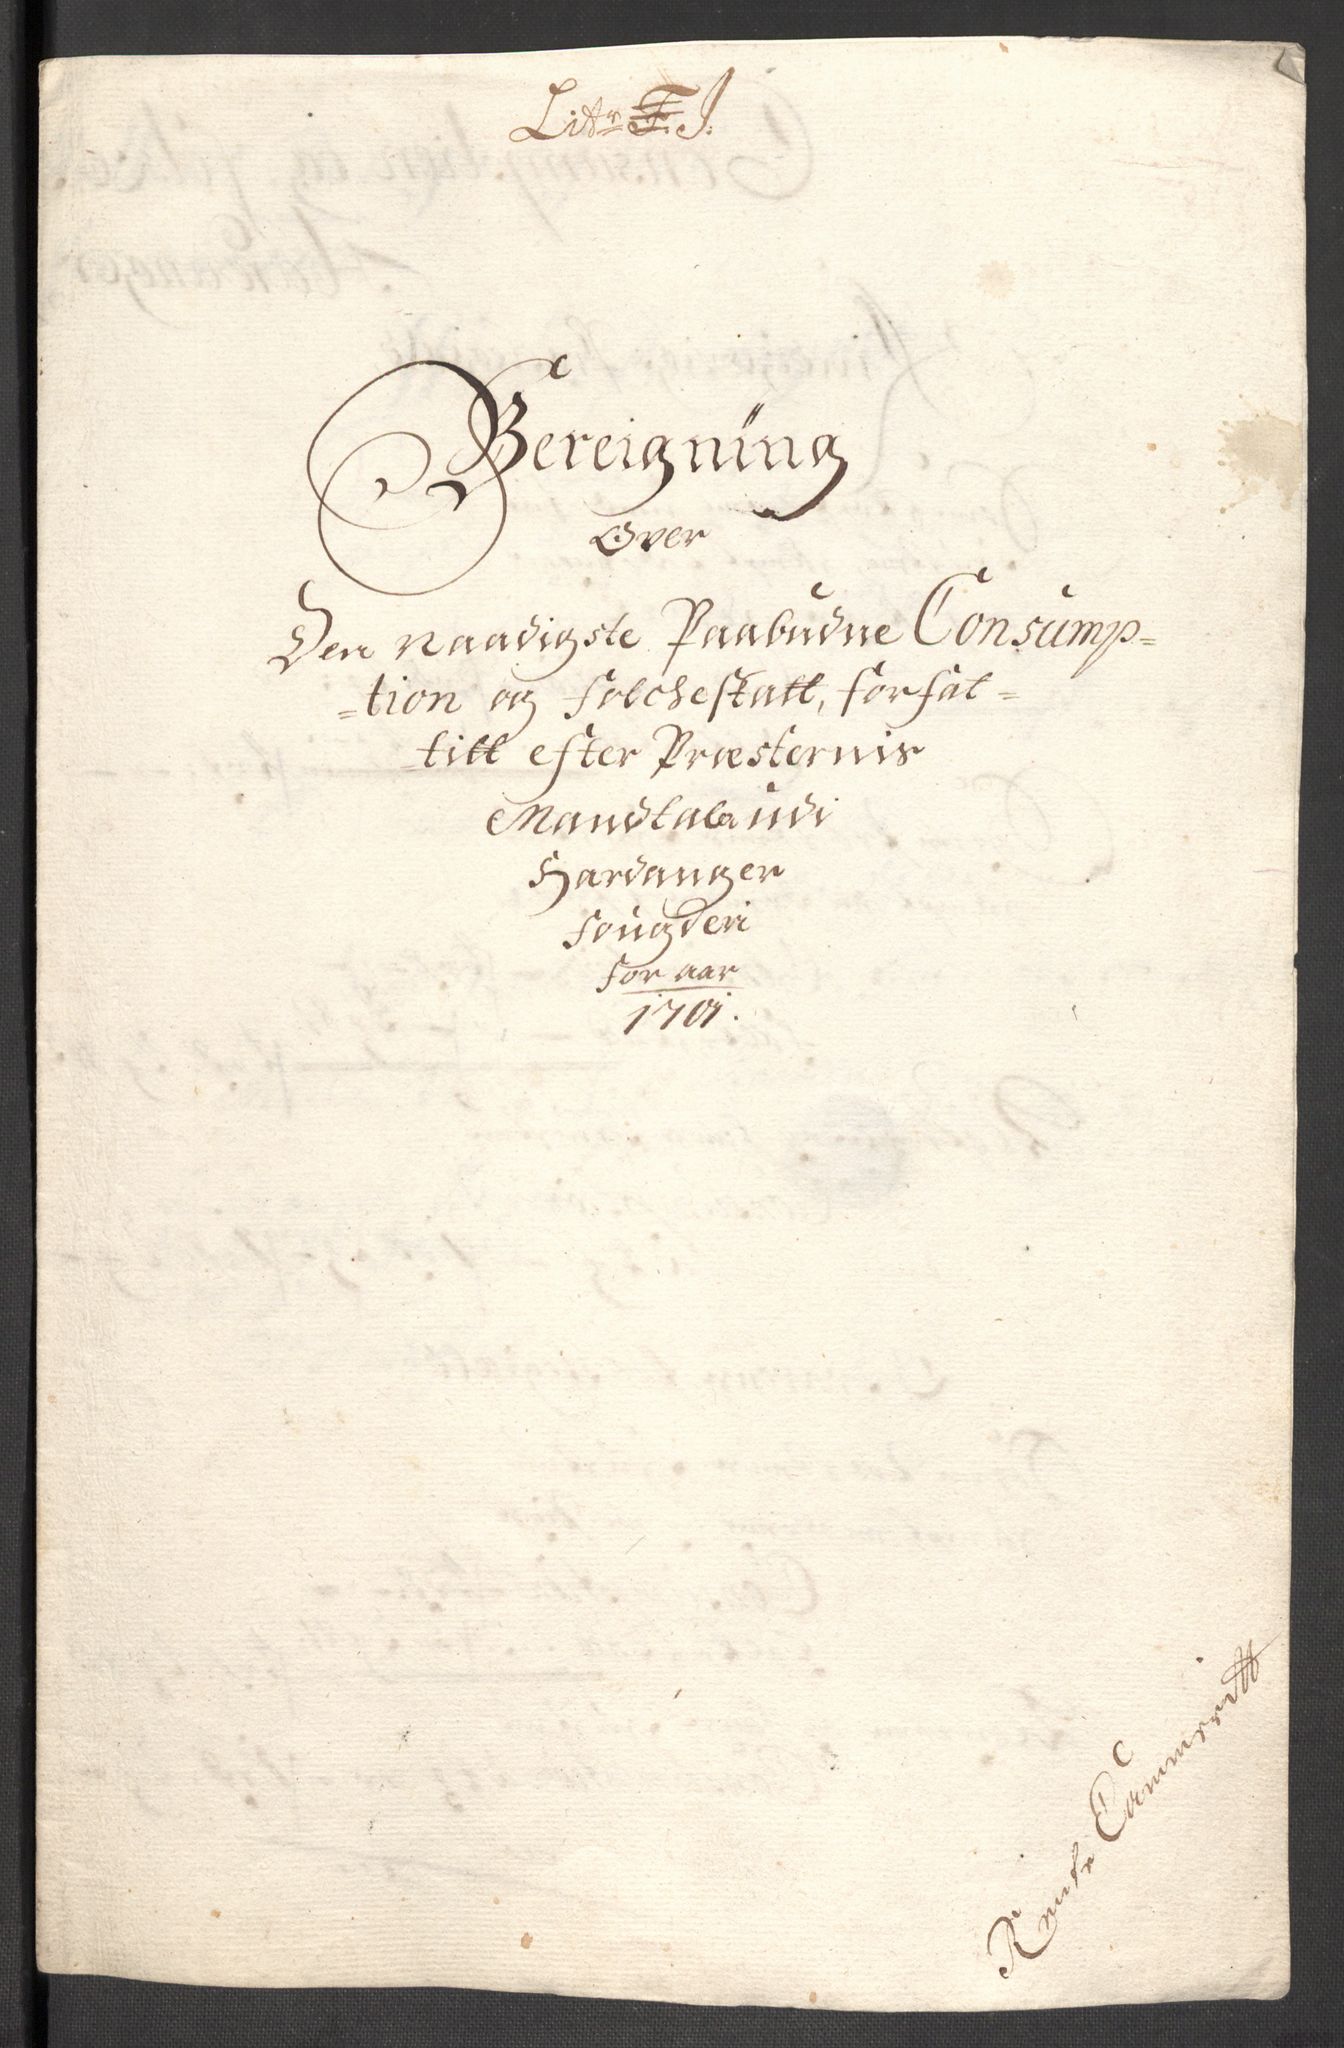 Litr F. J.
Bereigning
Over
Den Naadigste Paabudne Consump-
-tion og folcheskatt, forfat-
-titt efter Præsternis
Mandtaler udi
Hardanger
fougderi
for aar
1701.
Rente Cammerett